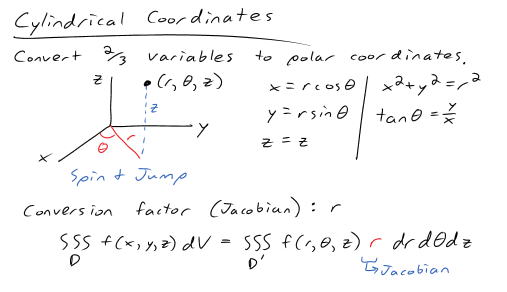 Cylindrical Coordinates
Convert 2/3 variables to polar coordinates.
z
(r, θ, z)
z
y
x
θ
r
Spin & Jump
x = r cos θ
y = r sin θ
z = z
x² + y² = r²
tan θ = y/x
Conversion factor (Jacobian) : r
∭ f(x, y, z) dV = ∭ f(r, θ, z) r dr dθ dz
D D'
Jacobian